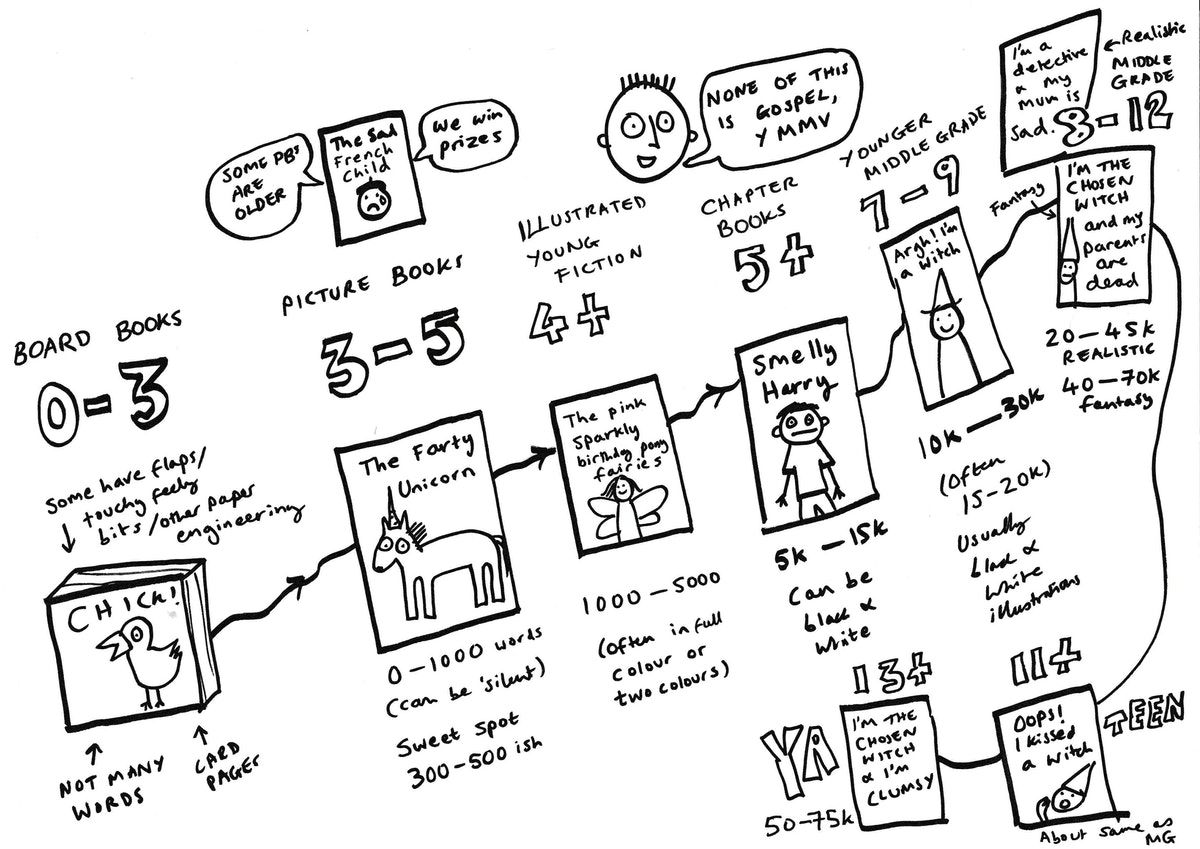 BOARD BOOKS
0-3
some have flaps/
touchy feely
bits/other paper
engineering
CHICK!
NOT MANY
WORDS
CARD
PAGES
SOME PBs
ARE
OLDER
The Sad
French
Child
We win
prizes
PICTURE BOOKS
3-5
The Farty
Unicorn
0-1000 words
(can be 'silent')
Sweet spot
300-500 ish
ILLUSTRATED
YOUNG
FICTION
4+
The pink
Sparkly
birthday pony
fairies
1000-5000
(often in full
colour or
two colours)
NONE OF THIS
IS GOSPEL,
YMMV
CHAPTER
BOOKS
5+
Smelly
Harry
5k-15k
Can be
black &
white
YOUNGER
MIDDLE GRADE
7-9
Argh! I'm
a witch
10k-30k
(often
15-20k)
Usually
black &
white
illustrations
I'm a
detective
& my
mum is
sad.
Realistic
MIDDLE
GRADE
8-12
Fantasy
I'M THE
CHOSEN
WITCH
and my
parents
are
dead
20-45k
REALISTIC
40-70k
fantasy
11+
TEEN
OOPS!
I kissed
a witch
About same as
MG
13+
YA
I'M THE
CHOSEN
WITCH
& I'M
CLUMSY
50-75k